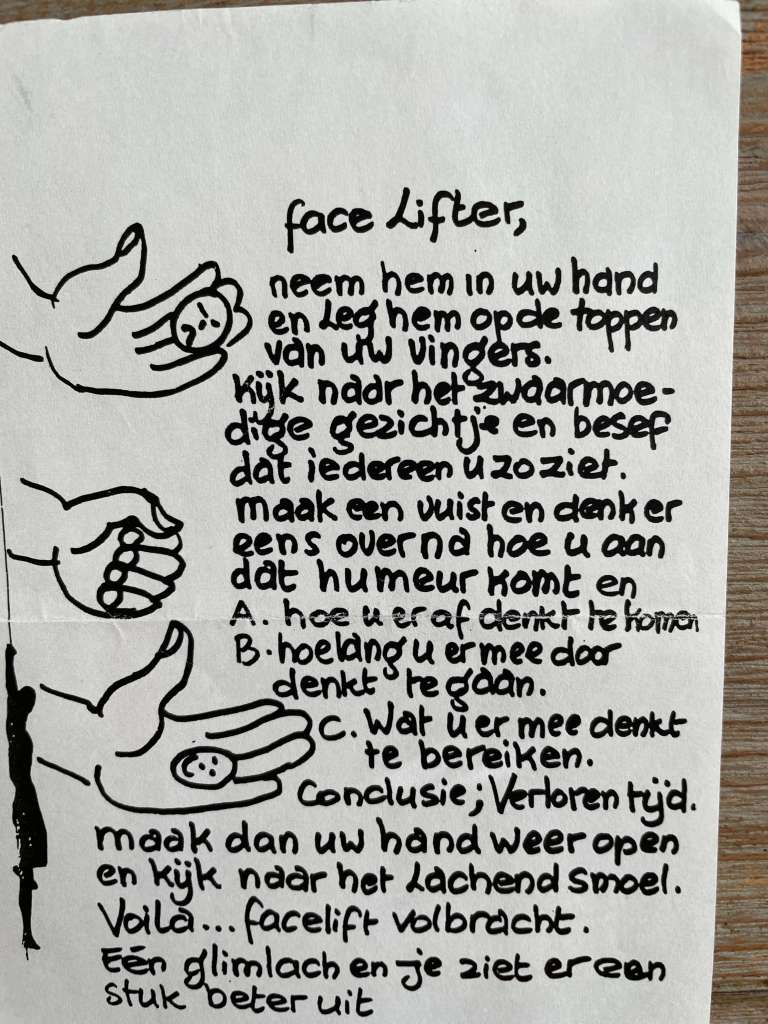 face Lifter,
neem hem in uw hand
en Leg hem op de toppen
van uw vingers.
Kijk naar het zwaarmoe-
dige gezichtje en besef
dat iedereen u zo ziet.
maak een vuist en denk er
eens over na hoe u aan
dat humeur komt en
A. hoe u er af denkt te komen
B. hoelang u er mee door
denkt te gaan.
C. Wat u er mee denkt
te bereiken.
Conclusie; Verloren tijd.
maak dan uw hand weer open
en kijk naar het Lachend smoel.
Voilà... facelift volbracht.
Eén glimlach en je ziet er een
stuk beter uit